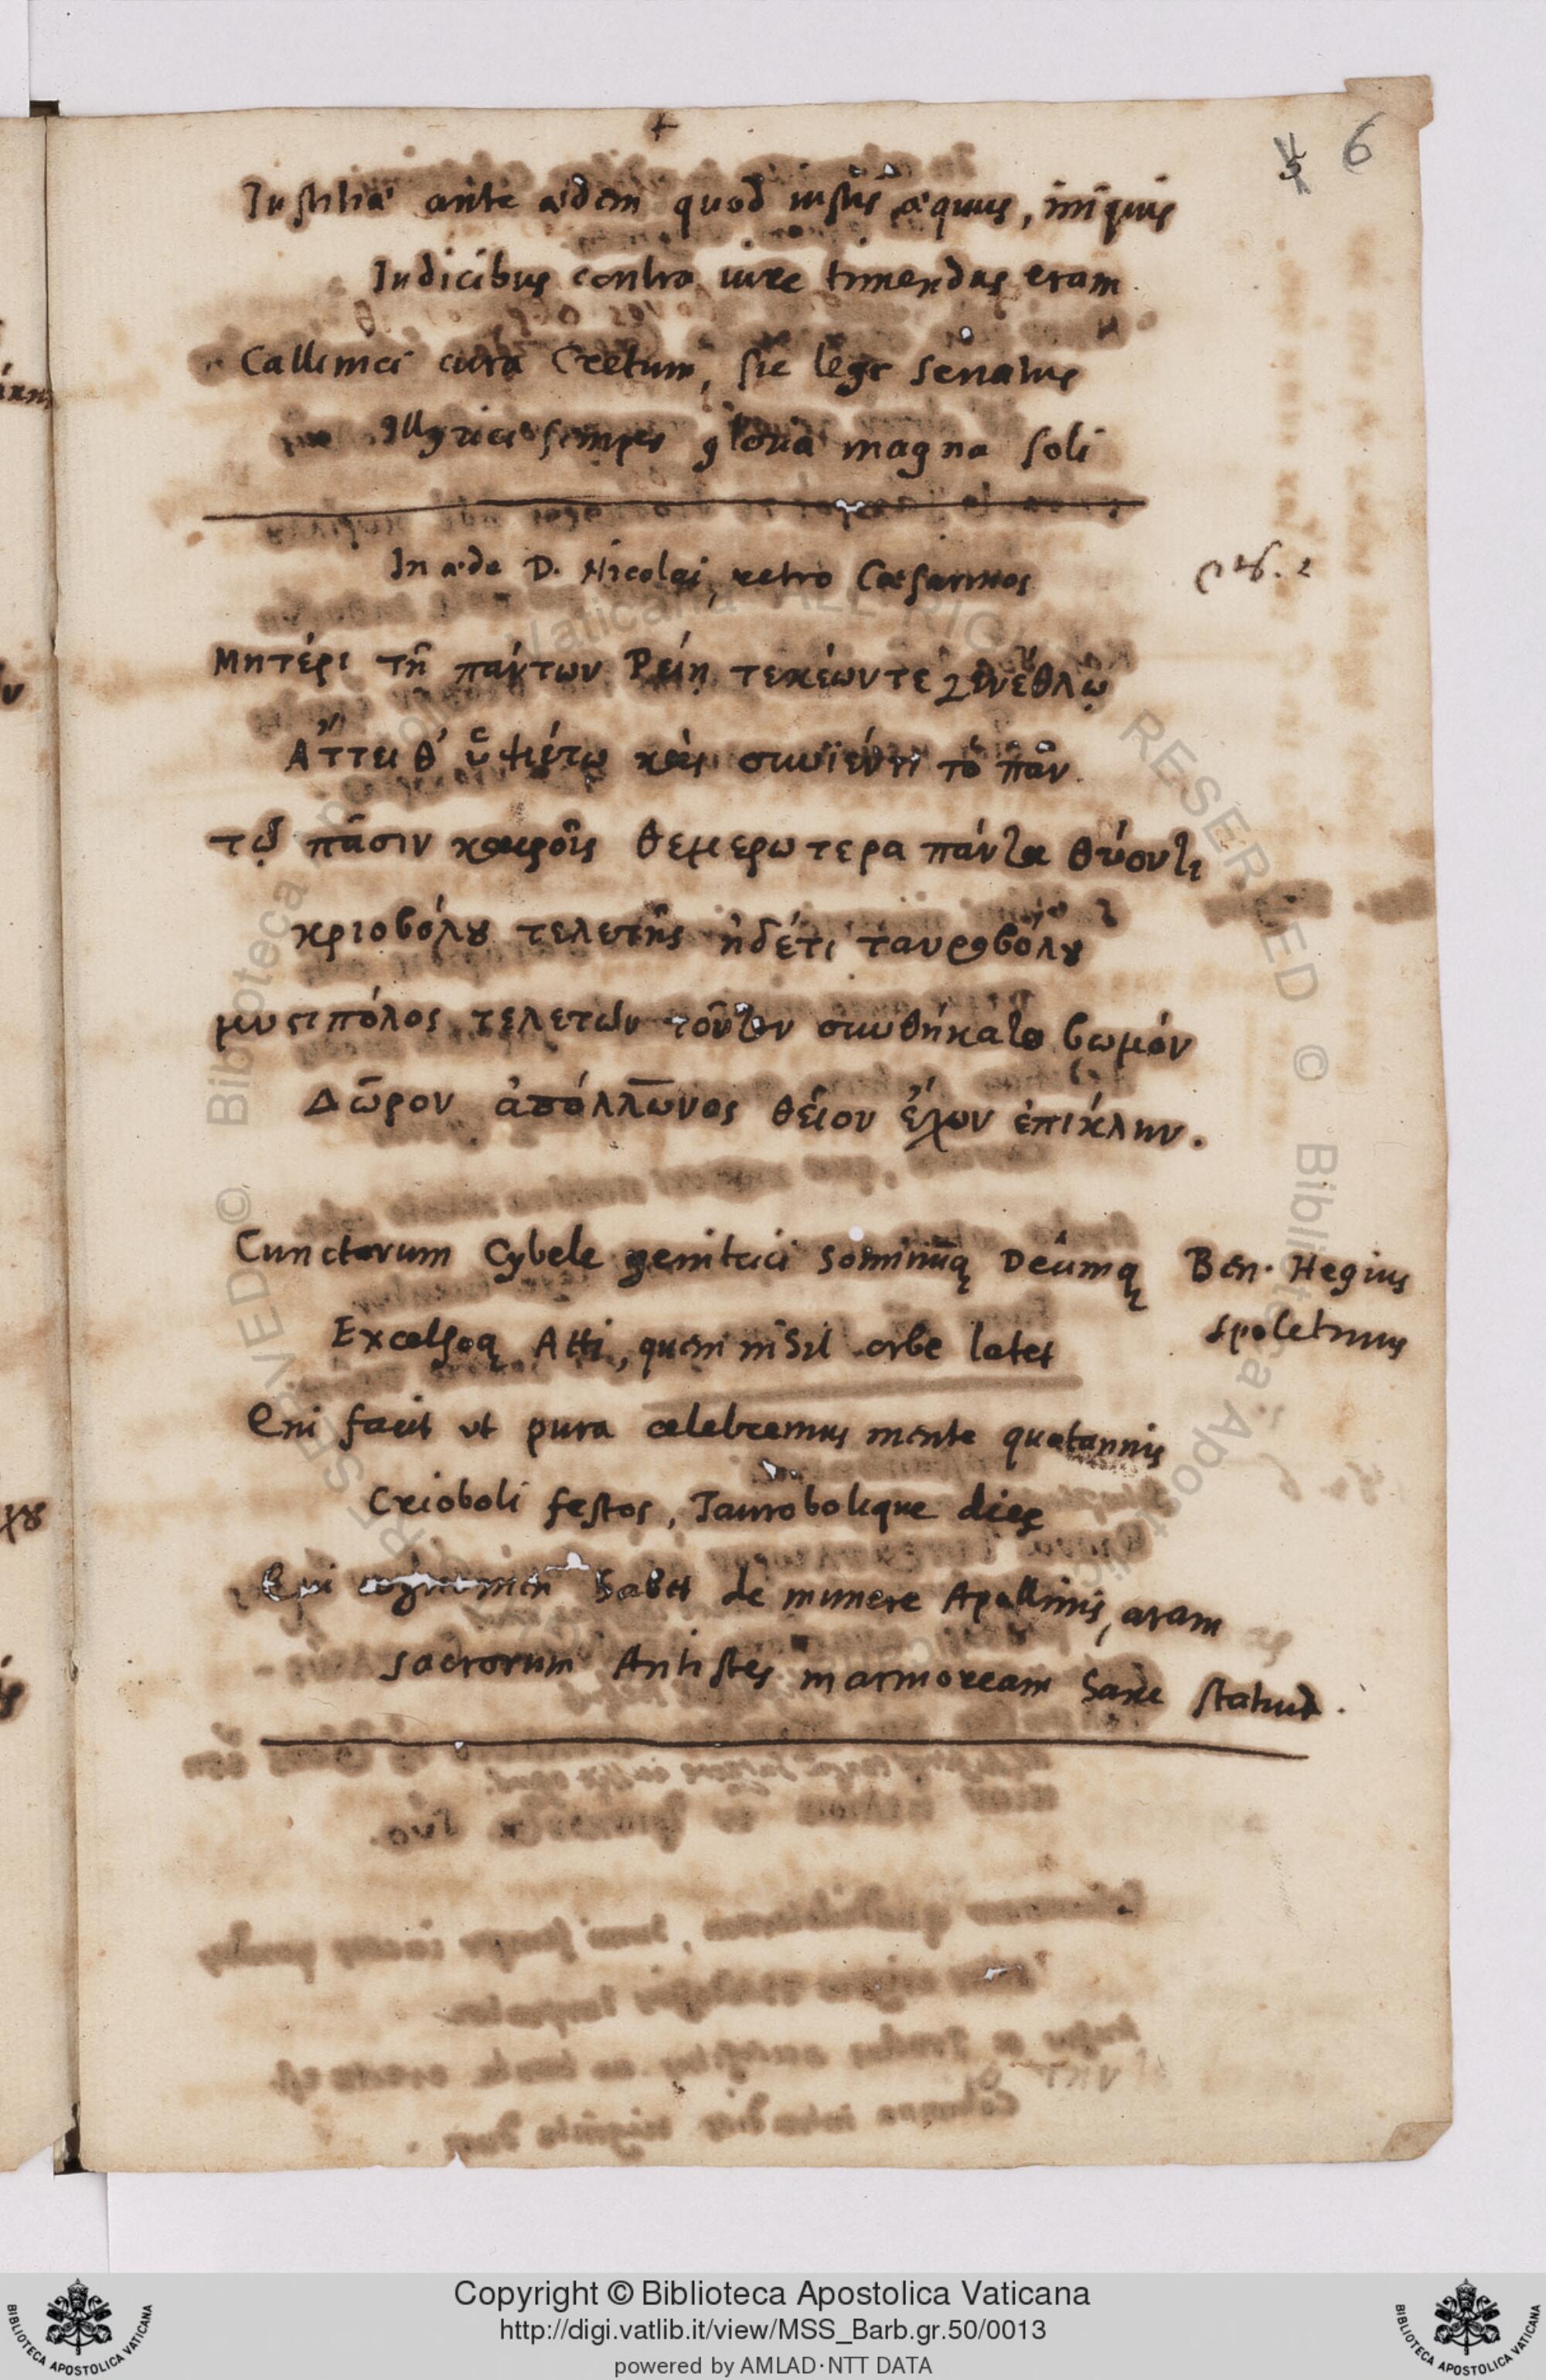 5 6
Iustitiæ ante ædem quod iustus æquus, iniquis
Iudicibus contra iure timendus eram.
Callinici cura Cretum, sic lege senatus
Illyrici semper gloria magna soli
In æde D. Nicolai, retro Cæsarinos
Μητέρι τῇ πάντων Ῥείῃ τεκέων τε γενέθλῳ
Ἄττει θ' ὑψίστῳ καὶ συνιέντι τὸ πᾶν.
τῷ πᾶσιν καιροῖς θεμερωτερα πάντα θύοντι
κριοβόλου τελετῆς ἠδέτι ταυροβόλου
μυστιπόλος τελετῶν τοῦτον συνθήκατο βωμόν
Δῶρον ἀπόλλωνος θεῖον ἔχων ἐπίκλην.
Cunctorum Cybele genitrici hominumq Deûmq Ben. Hegius
Excelsoq Atti, quem nihil orbe latet Spoletinus
Cui facit ut pura celebremus mente quotannis
Crioboli festos, Taurobolique dies
Qui cognomen habet de munere Apollinis, aram
Sacrorum Antistes marmoream hanc statuit.
Copyright © Biblioteca Apostolica Vaticana
http://digi.vatlib.it/view/MSS_Barb.gr.50/0013
powered by AMLAD·NTT DATA